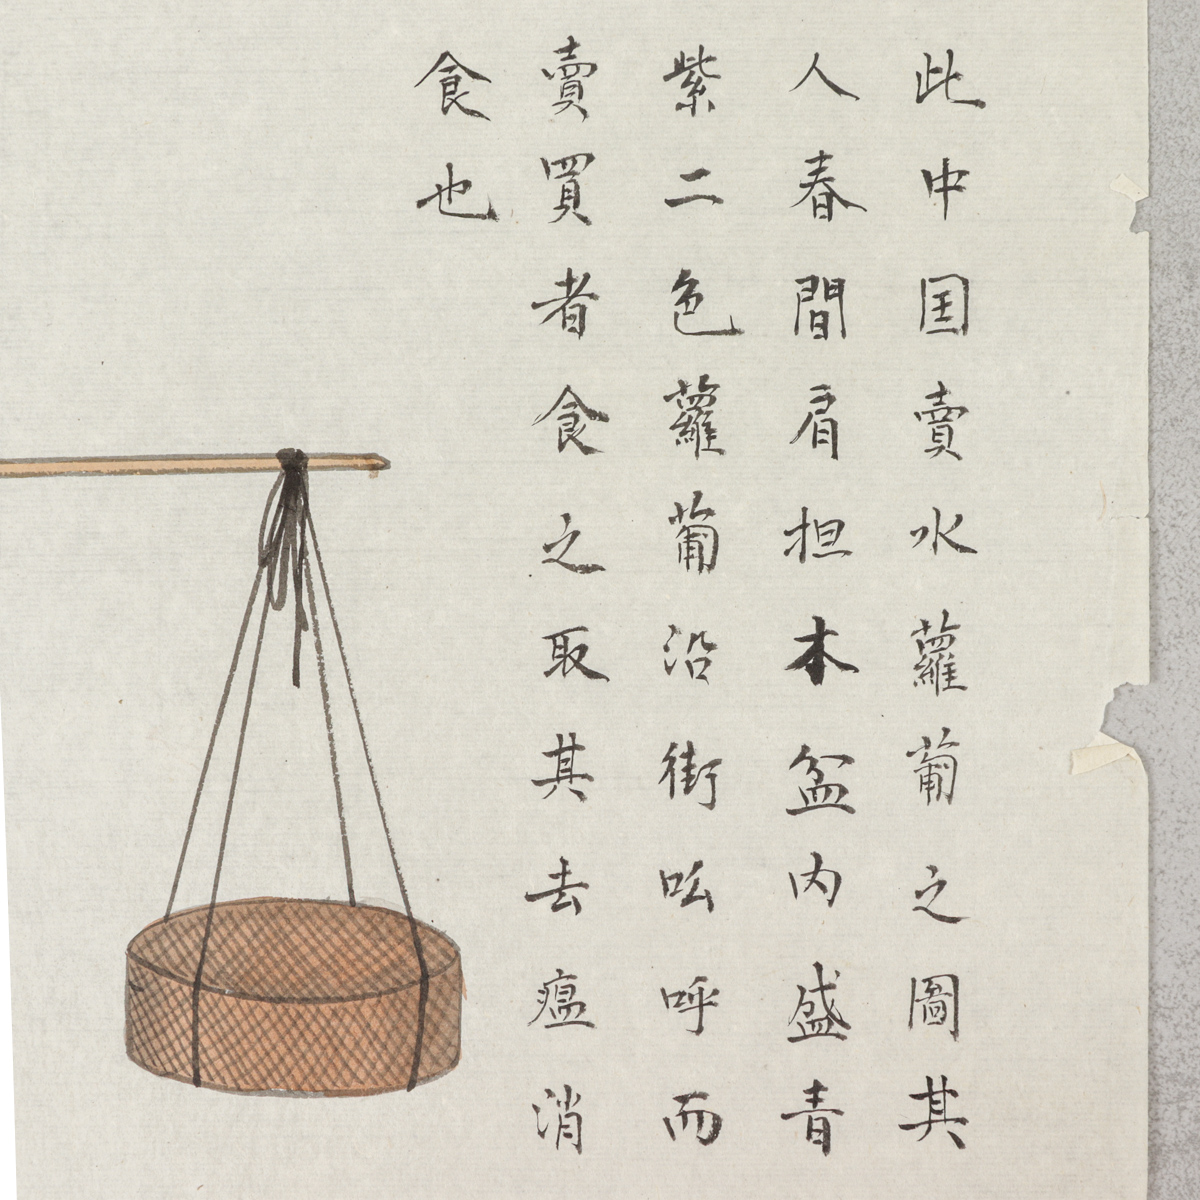 此中囯賣水蘿葡之圖其
人春間肩担木盆内盛青
紫二色蘿葡沿街吆呼而
賣買者食之取其去瘟消
食也